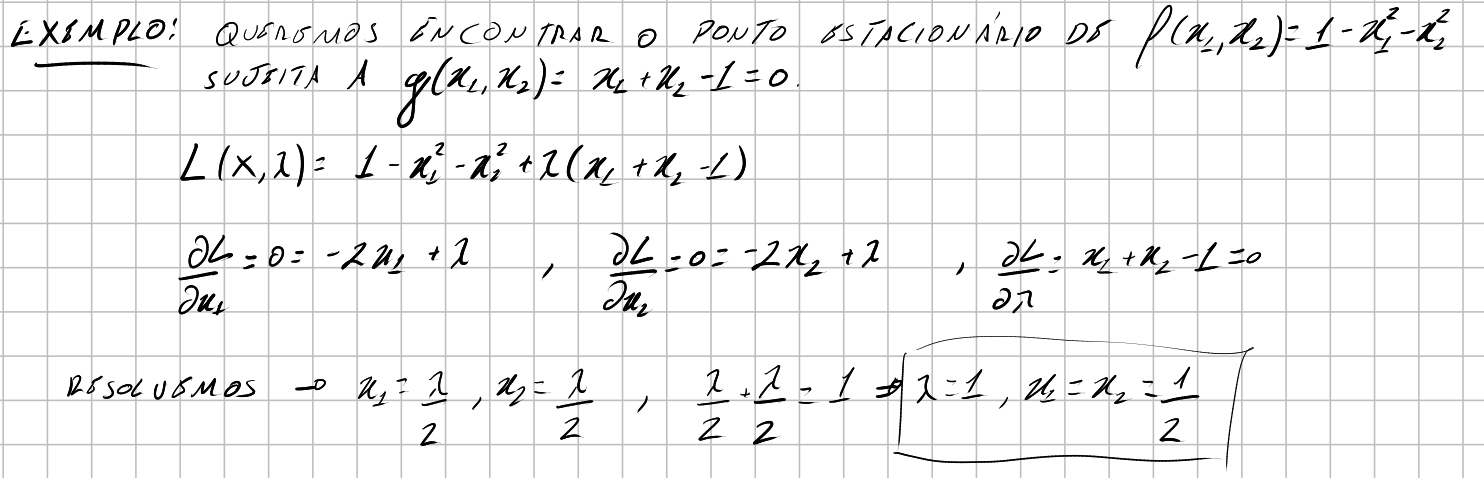 EXEMPLO: QUEREMOS ENCONTRAR O PONTO ESTACIONÁRIO DE f(x₁, x₂) = 1 - x₁² - x₂²
SUJEITA A g(x₁, x₂) = x₁ + x₂ - 1 = 0.
L(X, λ) = 1 - x₁² - x₂² + λ(x₁ + x₂ - 1)
∂L/∂x₁ = 0 = -2x₁ + λ , ∂L/∂x₂ = 0 = -2x₂ + λ , ∂L/∂λ = x₁ + x₂ - 1 = 0
RESOLVEMOS → x₁ = λ/2 , x₂ = λ/2 , λ/2 + λ/2 = 1 ⇒ λ = 1 , x₁ = x₂ = 1/2